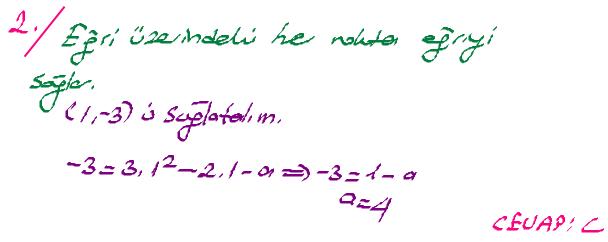 2./ Eğri üzerindeki her nokta eğriyi
sağlar.
(1,-3) ü sağlatalım.
-3=3.1²-2.1-a⇒-3=1-a
a=4
CEVAP: C